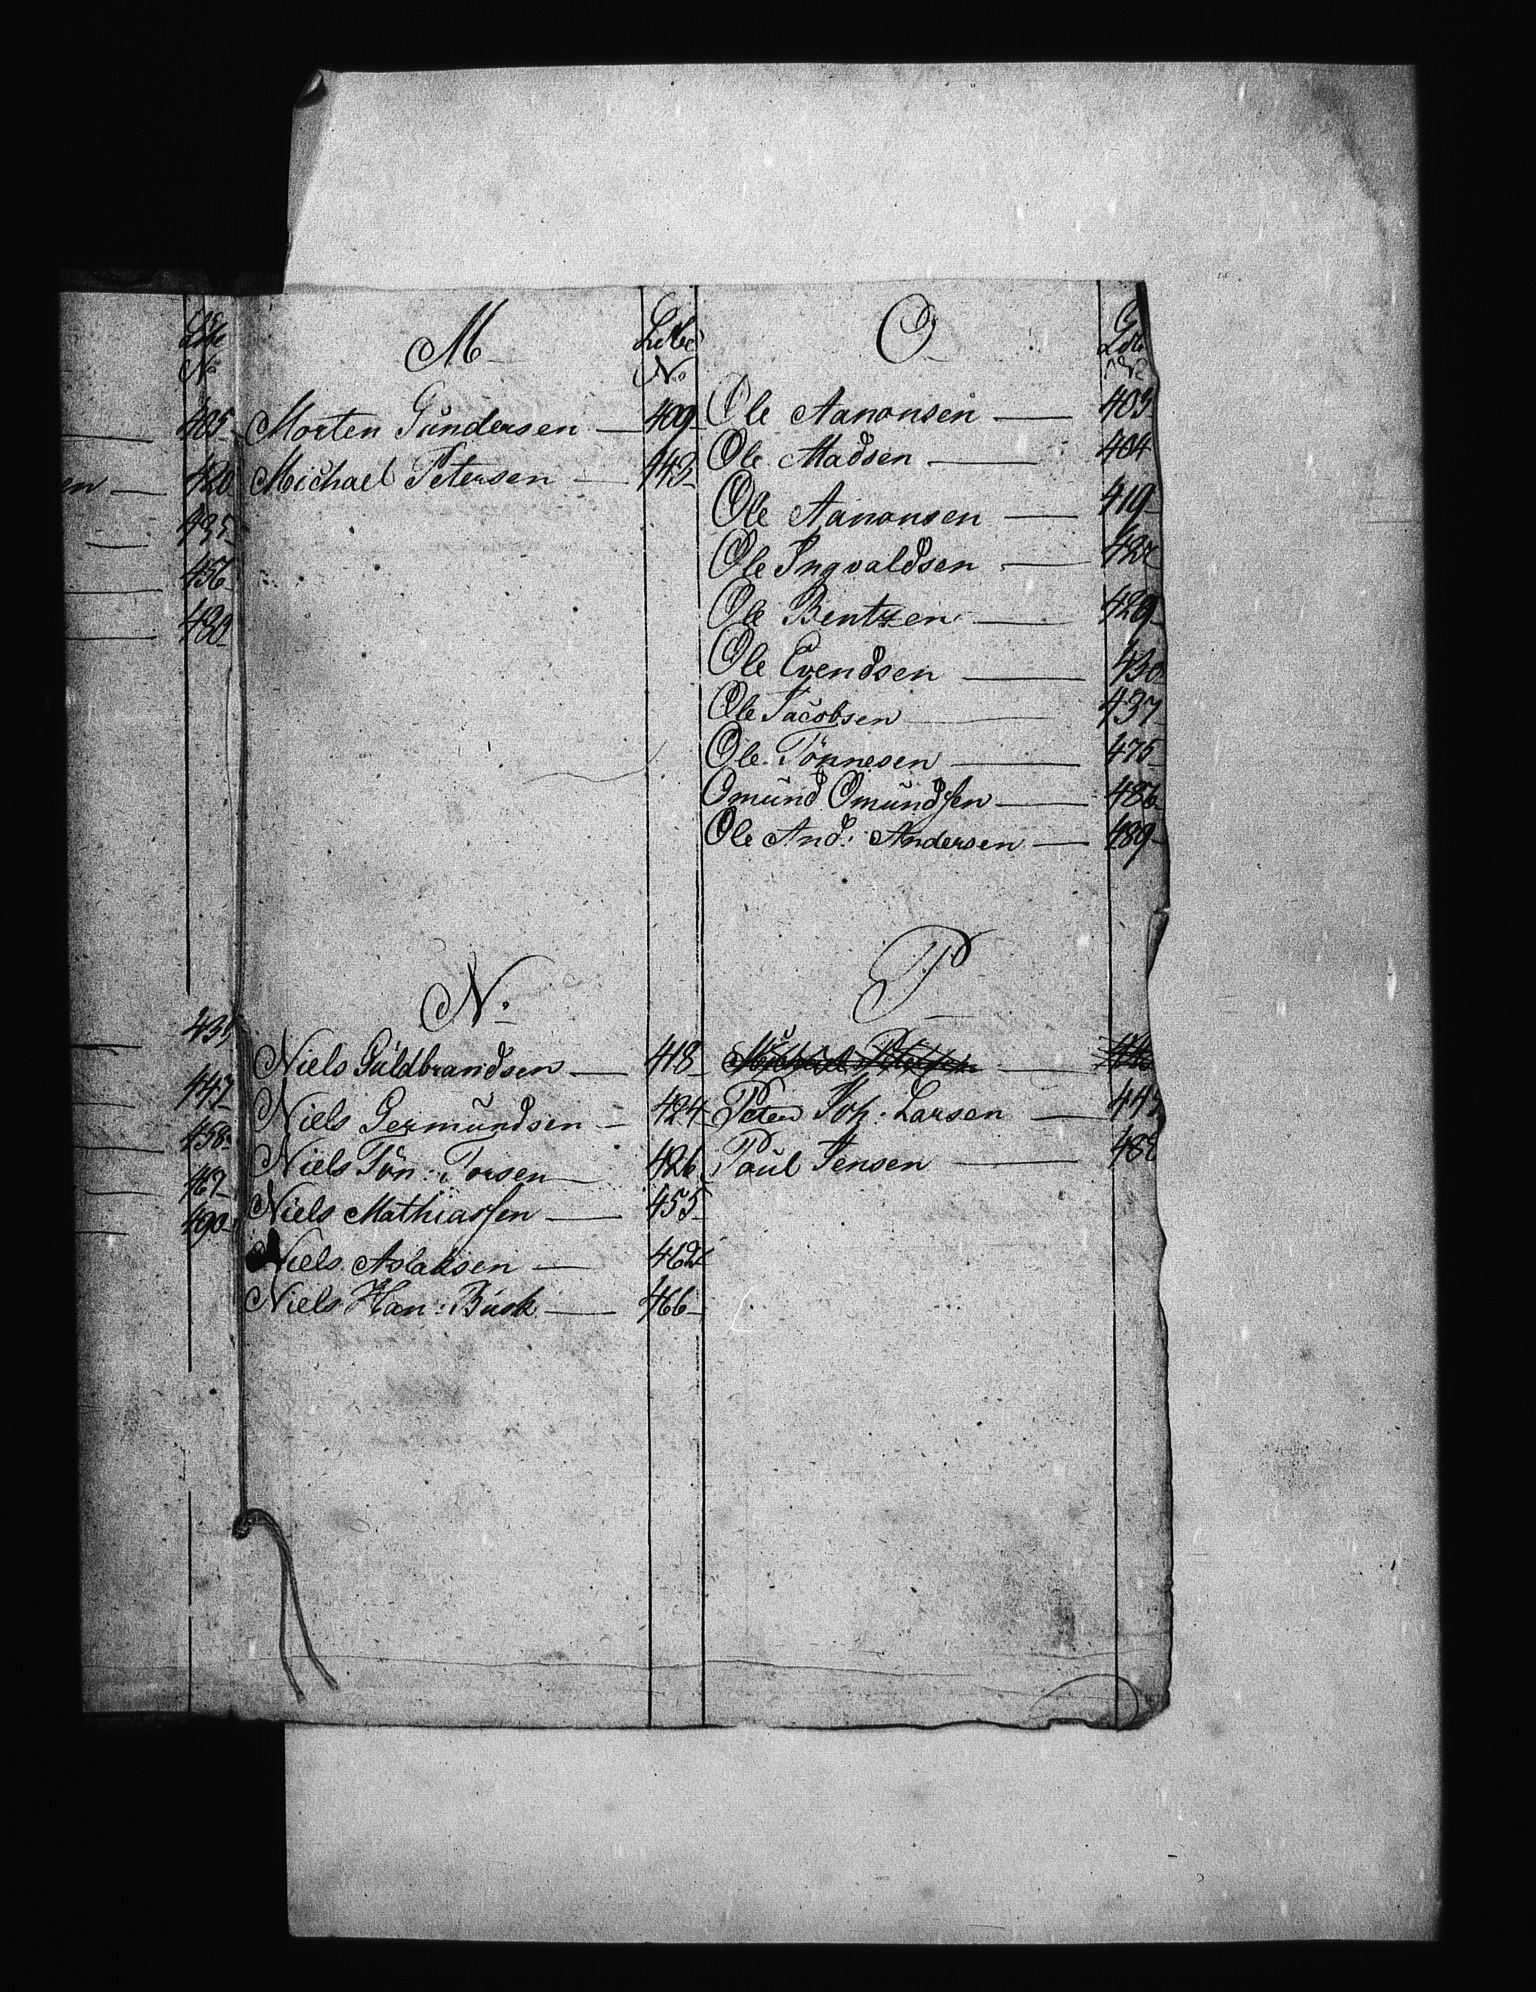 Löbe
No
405
en 420
435
456
482
439
447
458
467
490
M
Löbe
No
Morten Gundersen 409
Michael Petersen 443
N.
Niels Guldbrandsen 418
Niels Germundsen 424
Niels Tön: Torsen 426
Niels Mathiassen 455
Niels Aslaksen 462
Niels Han: Busk 466
O
Löb
No
Ole Aanonsen 403
Ole Madsen 404
Ole Aanonsen 419
Ole Ingvaldsen 427
Ole Bentzen 429
Ole Evendsen 430
Ole Jacobsen 437
Ole Tönnesen 475
Omund Omundsen 486
Ole And: Andersen 489
P
Michael Petersen
Peter Joh: Larsen 445
Paul Jensen 488